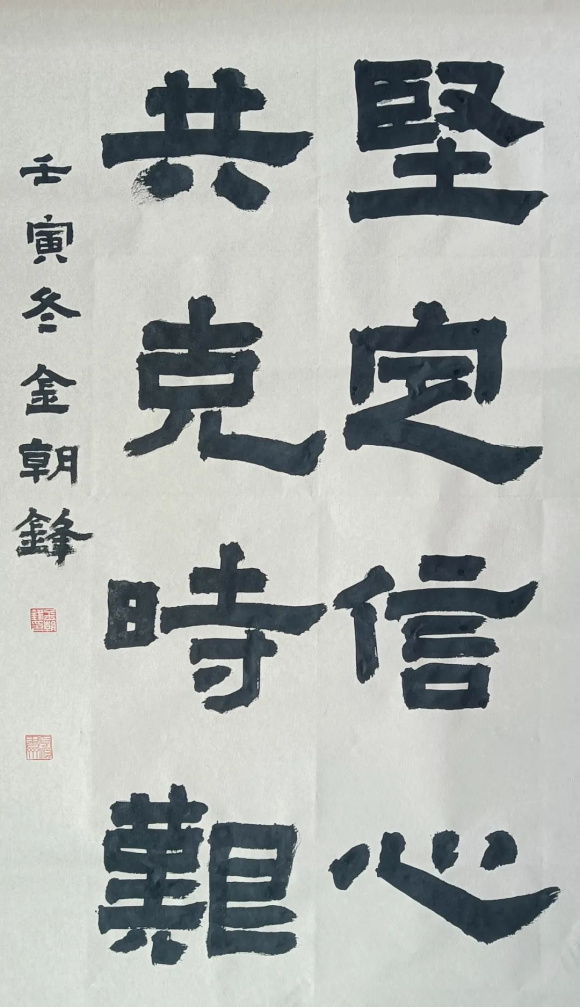 堅定信心
共克時難
壬寅冬金朝鋒